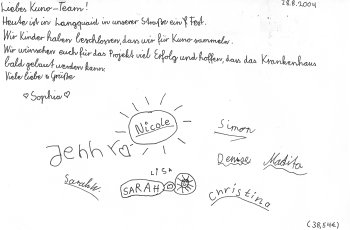 Liebes Kuno-Team! 28.8.2004
Heute ist in Langquaid in unserer Straße ein Fest.
Wir Kinder haben beschlossen, dass wir für Kuno sammeln.
Wir wünschen euch für das Projekt viel Erfolg und hoffen, dass das Krankenhaus
bald gebaut werden kann.
Viele liebe Grüße
♡ Sophia ♡
Nicole
Simon
Jenny
LISA
Denise Madita
Sarah
SARAH
Christina